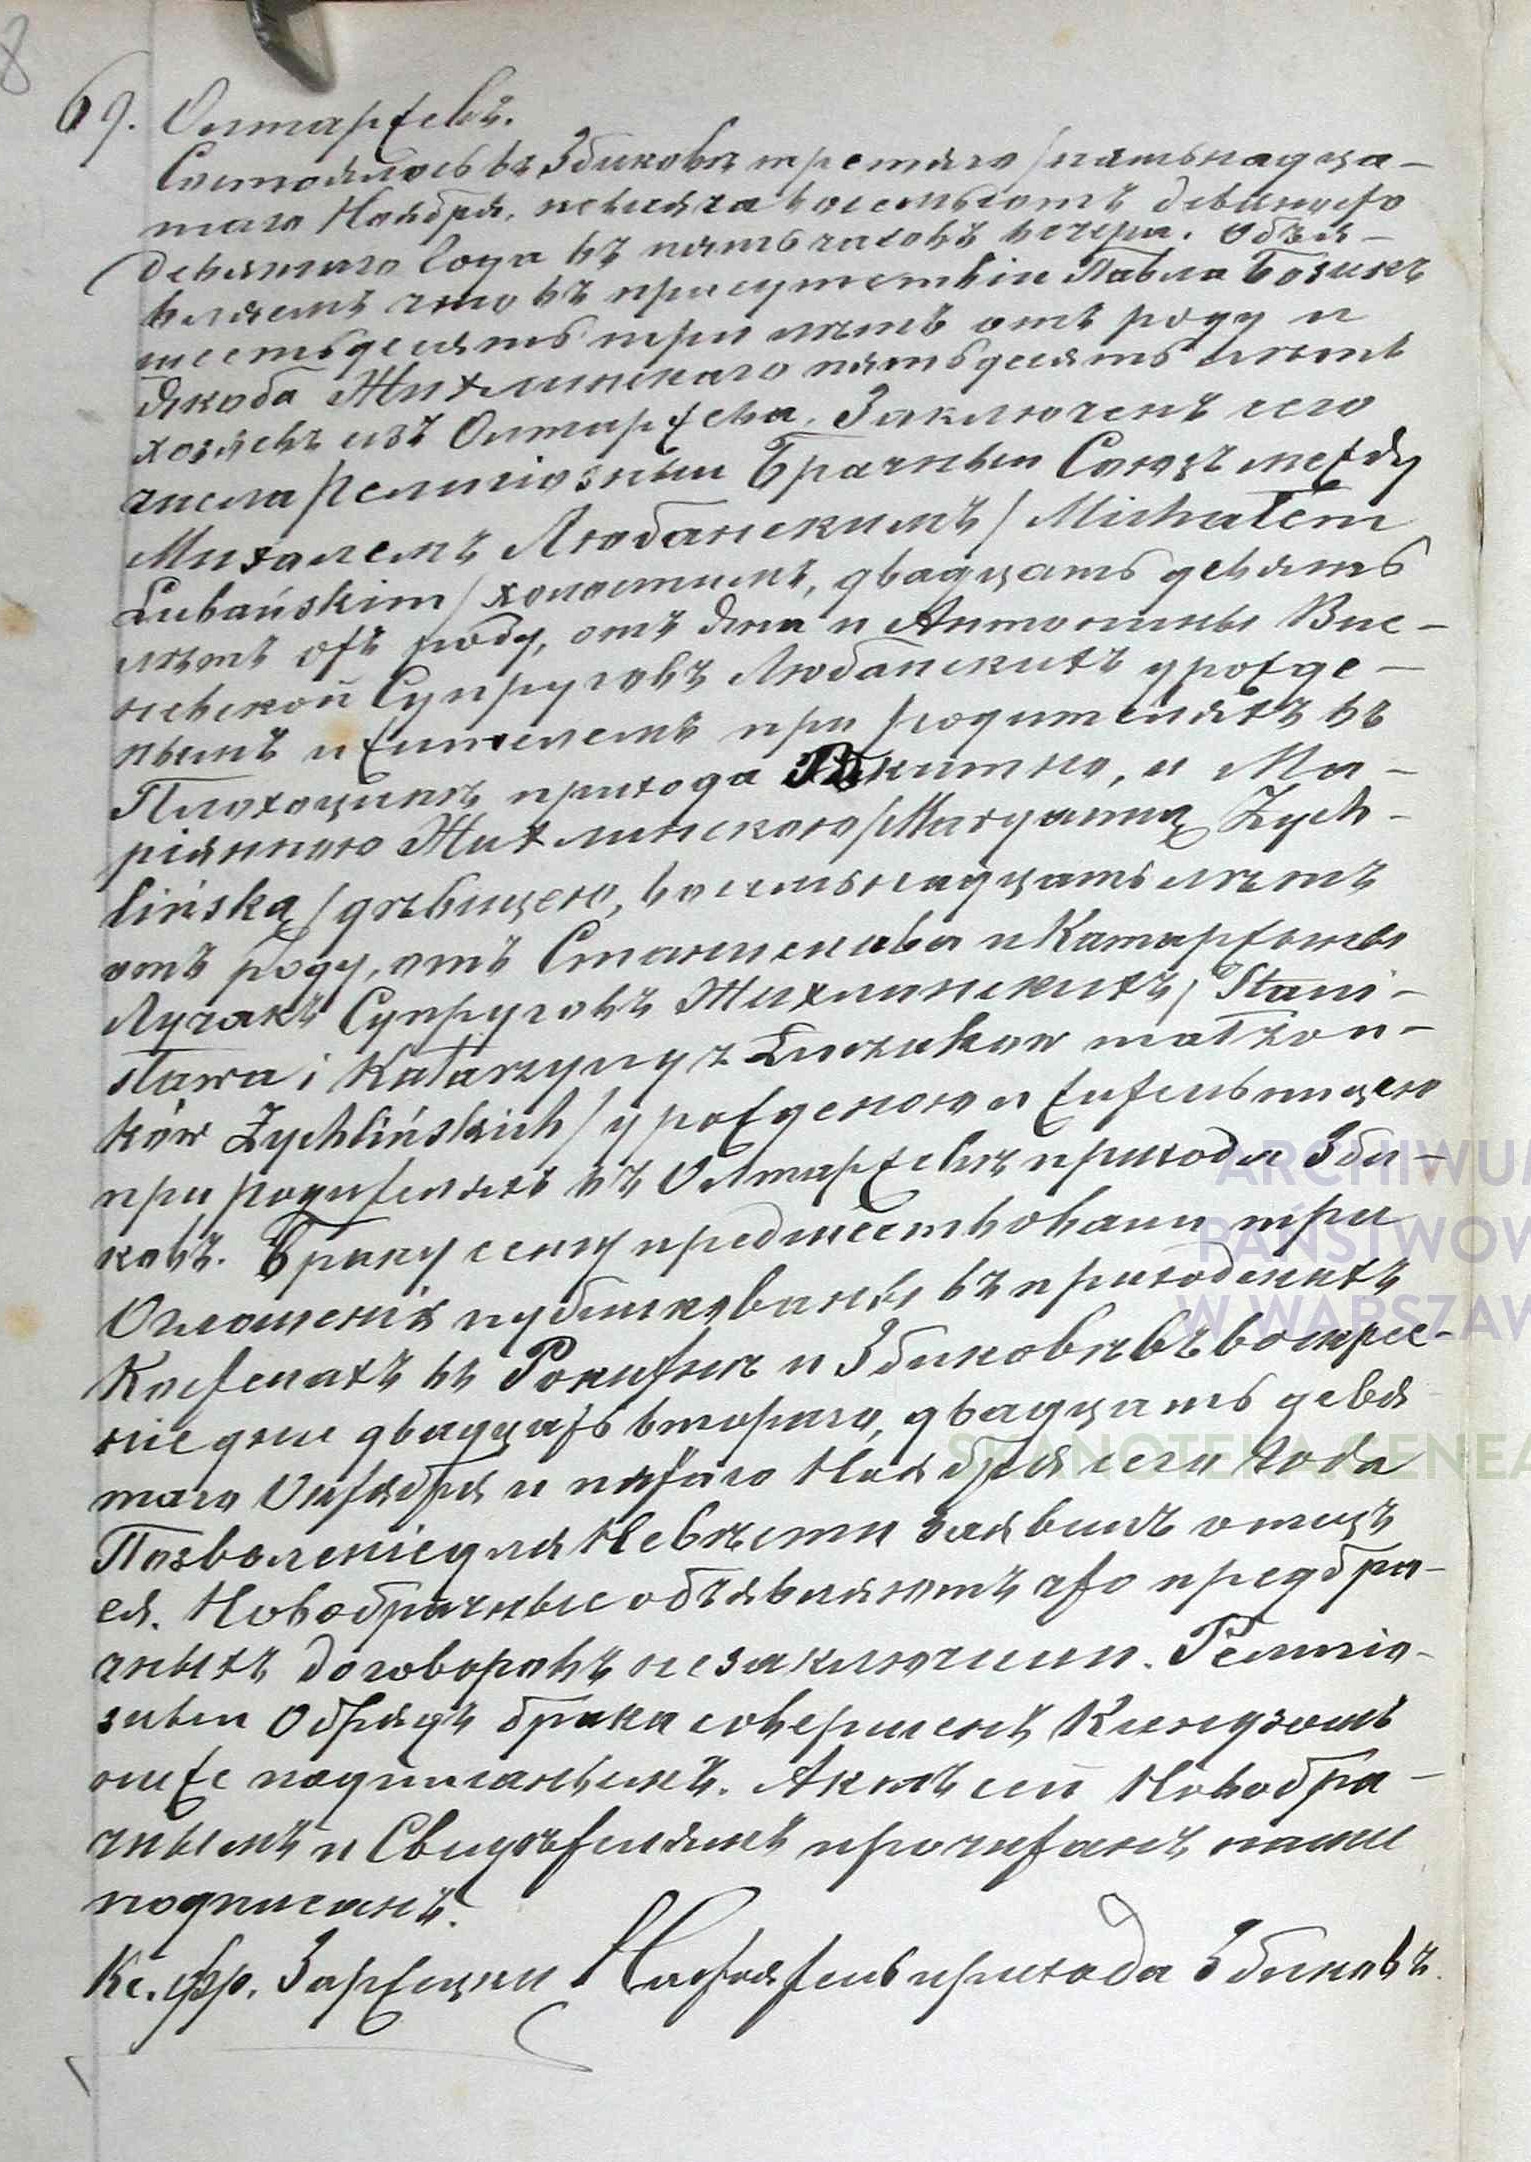 8
69. Олтаржевъ.
Состоялось въ Збиковѣ третяго / пятьнадца-
таго Ноября, тысяча восемьсотъ девяносто
девятаго года въ пять часовъ вечера. Объя-
вляемъ что въ присутствіи Павла Бозикъ
шестьдесятъ три лѣтъ отъ роду и
Якоба Жихлинскаго пятьдесятъ лѣтъ
хозяевъ изъ Олтаржева, Заключенъ сего
числа религіозный Брачный Союзъ между
Михалемъ Любанскимъ / Michałem
Lubańskim / холостымъ, двадцать девять
лѣтъ отъ роду, отъ Яна и Антонины Вис-
невской Супруговъ Любанскихъ урожде-
нымъ и жителемъ при родителяхъ въ
Плохоцинѣ прихода Рокитно, и Ма-
ріянною Жихлинскою / Maryanną Żych-
lińską / дѣвицею, восемьнадцать лѣтъ
отъ роду, отъ Станислава и Катаржины
Лучакъ Супруговъ Жихлинскихъ / Stani-
sława i Katarzyny z Łuczaków małżon-
ków Żychlińskich / урожденою и жительницею
при родителяхъ въ Олтаржевѣ прихода Зби-
ковъ. Браку сему предшествовали три
Оглошенія публикованы въ приходскихъ
Костелахъ въ Рокитнѣ и Збиковѣ въ воскрес-
ніе дни двадцать втораго, двадцать девя-
таго Октября и пятаго Ноября сего года
Позволеніе для Невѣсты заявилъ отецъ
ея. Новобрачные объявляютъ что предбра-
чныхъ договоровъ не заключили. Религіо-
зный Обрядъ брака совершенъ Ксендзомъ
ниже подписанымъ. Актъ сей Новобра-
чнымъ и Свидѣтелямъ прочитанъ, нами
подписанъ.
Кс. Фр. Заржецки Настоятель прихода Збиковъ.
ARCHIWUM
PAŃSTWOW
W WARSZAW
SKANOTEKA.GENEA